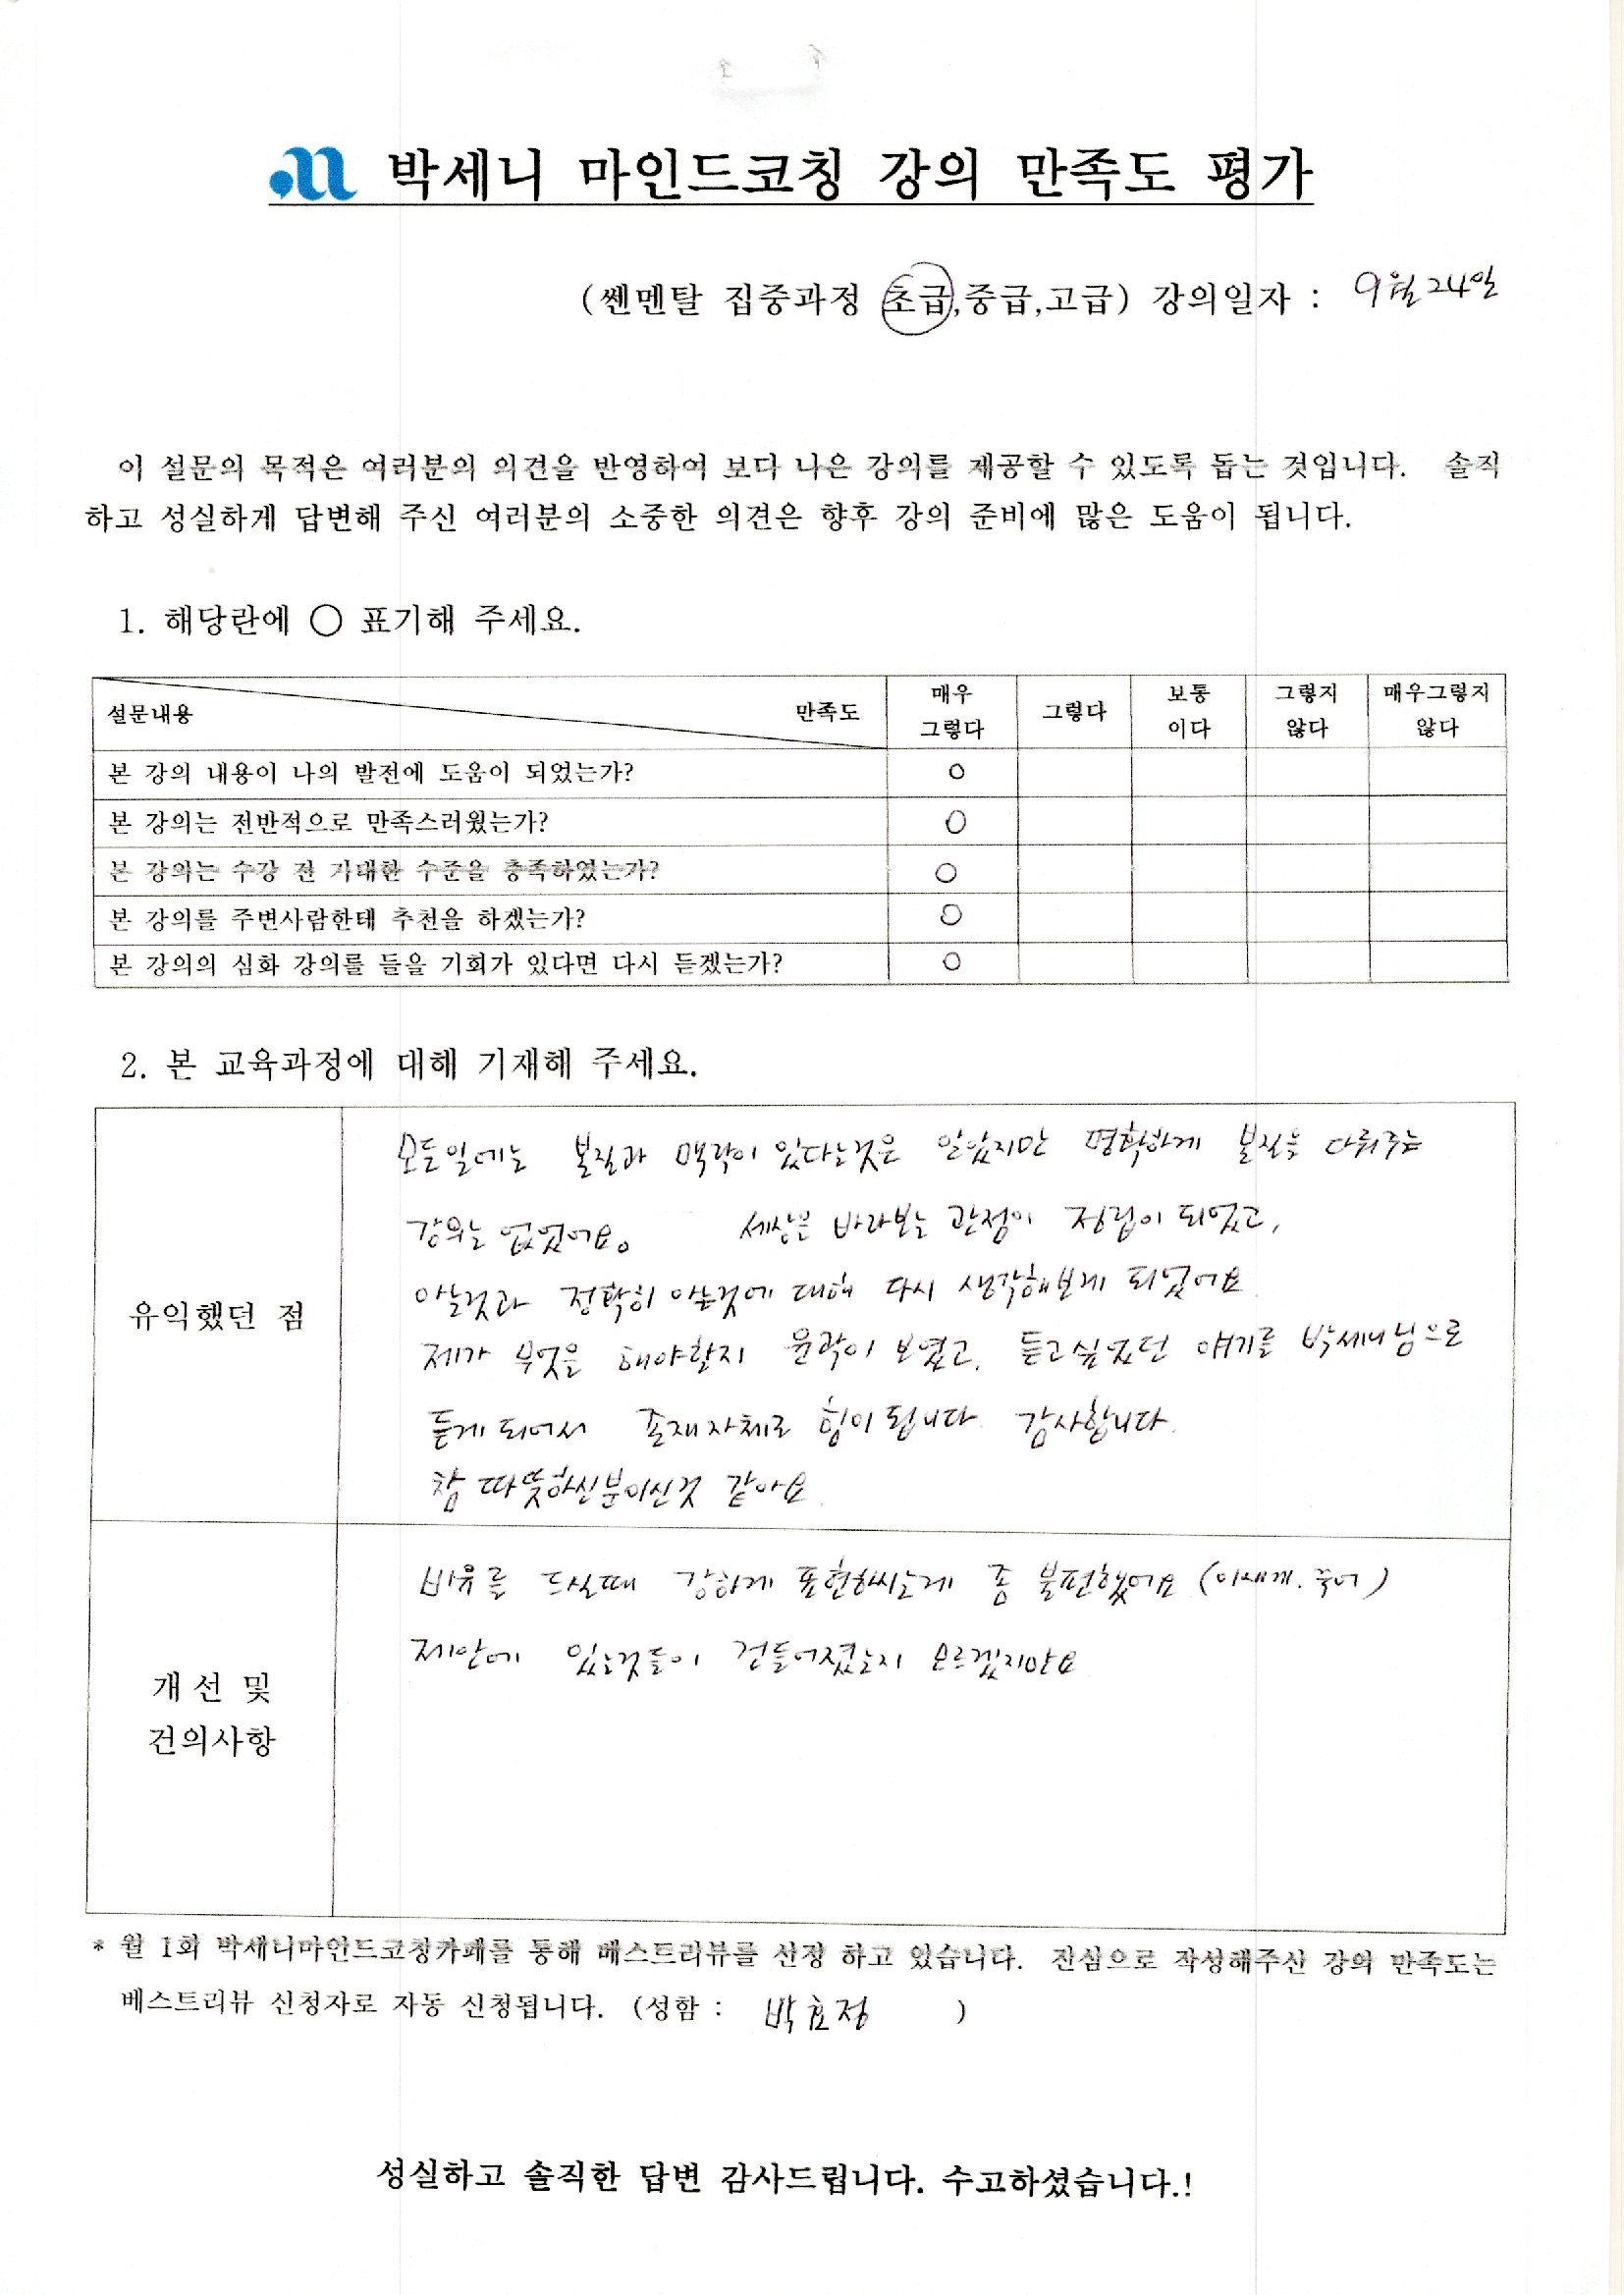 박세니 마인드코칭 강의 만족도 평가
(쎈멘탈 집중과정 초급,중급,고급) 강의일자 : 9월 24일
이 설문의 목적은 여러분의 의견을 반영하여 보다 나은 강의를 제공할 수 있도록 돕는 것입니다. 솔직
하고 성실하게 답변해 주신 여러분의 소중한 의견은 향후 강의 준비에 많은 도움이 됩니다.
1. 해당란에 ○ 표기해 주세요.
설문내용 만족도 매우 그렇다 그렇다 보통 이다 그렇지 않다 매우그렇지 않다
본 강의 내용이 나의 발전에 도움이 되었는가? ○
본 강의는 전반적으로 만족스러웠는가? ○
본 강의는 수강 전 기대한 수준을 충족하였는가? ○
본 강의를 주변사람한테 추천을 하겠는가? ○
본 강의의 심화 강의를 들을 기회가 있다면 다시 듣겠는가? ○
2. 본 교육과정에 대해 기재해 주세요.
유익했던 점
모든일에는 본질과 맥락이 있다는것은 알았지만 명확하게 본질을 다뤄주는
강의는 없었어요. 세상을 바라보는 관점이 정립이 되었고,
아는것과 정확히 아는것에 대해 다시 생각해보게 되었어요.
제가 무엇을 해야할지 윤곽이 보였고, 듣고싶었던 얘기를 박세니님으로
듣게 되어서 존재자체로 힘이 됩니다. 감사합니다.
참 따뜻하신분이신것 같아요.
개선 및
건의사항
비유를 드실때 강하게 표현하시는게 좀 불편했어요
제안에 있는것들이 건들어졌는지 모르겠지만요
* 월 1회 박세니마인드코칭카페를 통해 베스트리뷰를 선정 하고 있습니다. 진심으로 작성해주신 강의 만족도는
베스트리뷰 신청자로 자동 신청됩니다. (성함 : 박효정 )
성실하고 솔직한 답변 감사드립니다. 수고하셨습니다.!